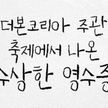 더본코리아 주관
축제에서 나온
수상한 영수증